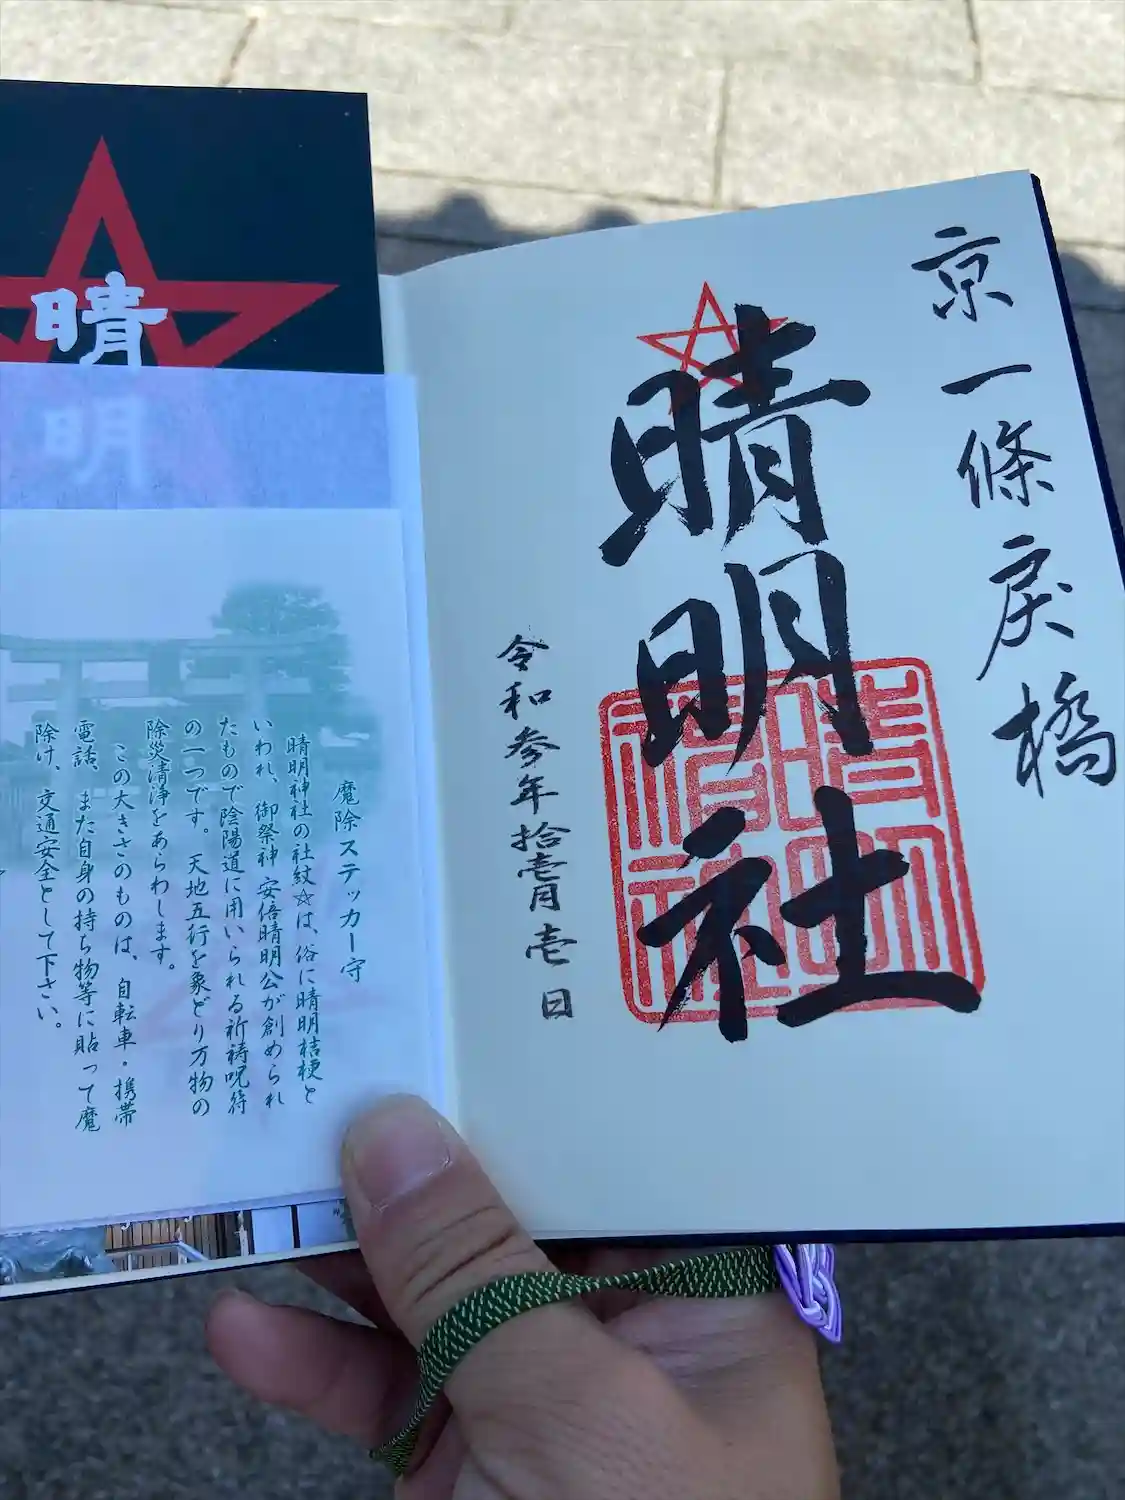 京一條戻橋
晴明社
晴明社
令和参年拾壱月壱日
晴
明
魔除ステッカー守
晴明神社の社紋☆は、俗に晴明桔梗と
いわれ、御祭神 安倍晴明公が創められ
たもので陰陽道に用いられる祈祷呪符
の一つです。天地五行を象どり万物の
除災清浄をあらわします。
この大きさのものは、自転車・携帯
電話、また自身の持ち物等に貼って魔
除け、交通安全として下さい。